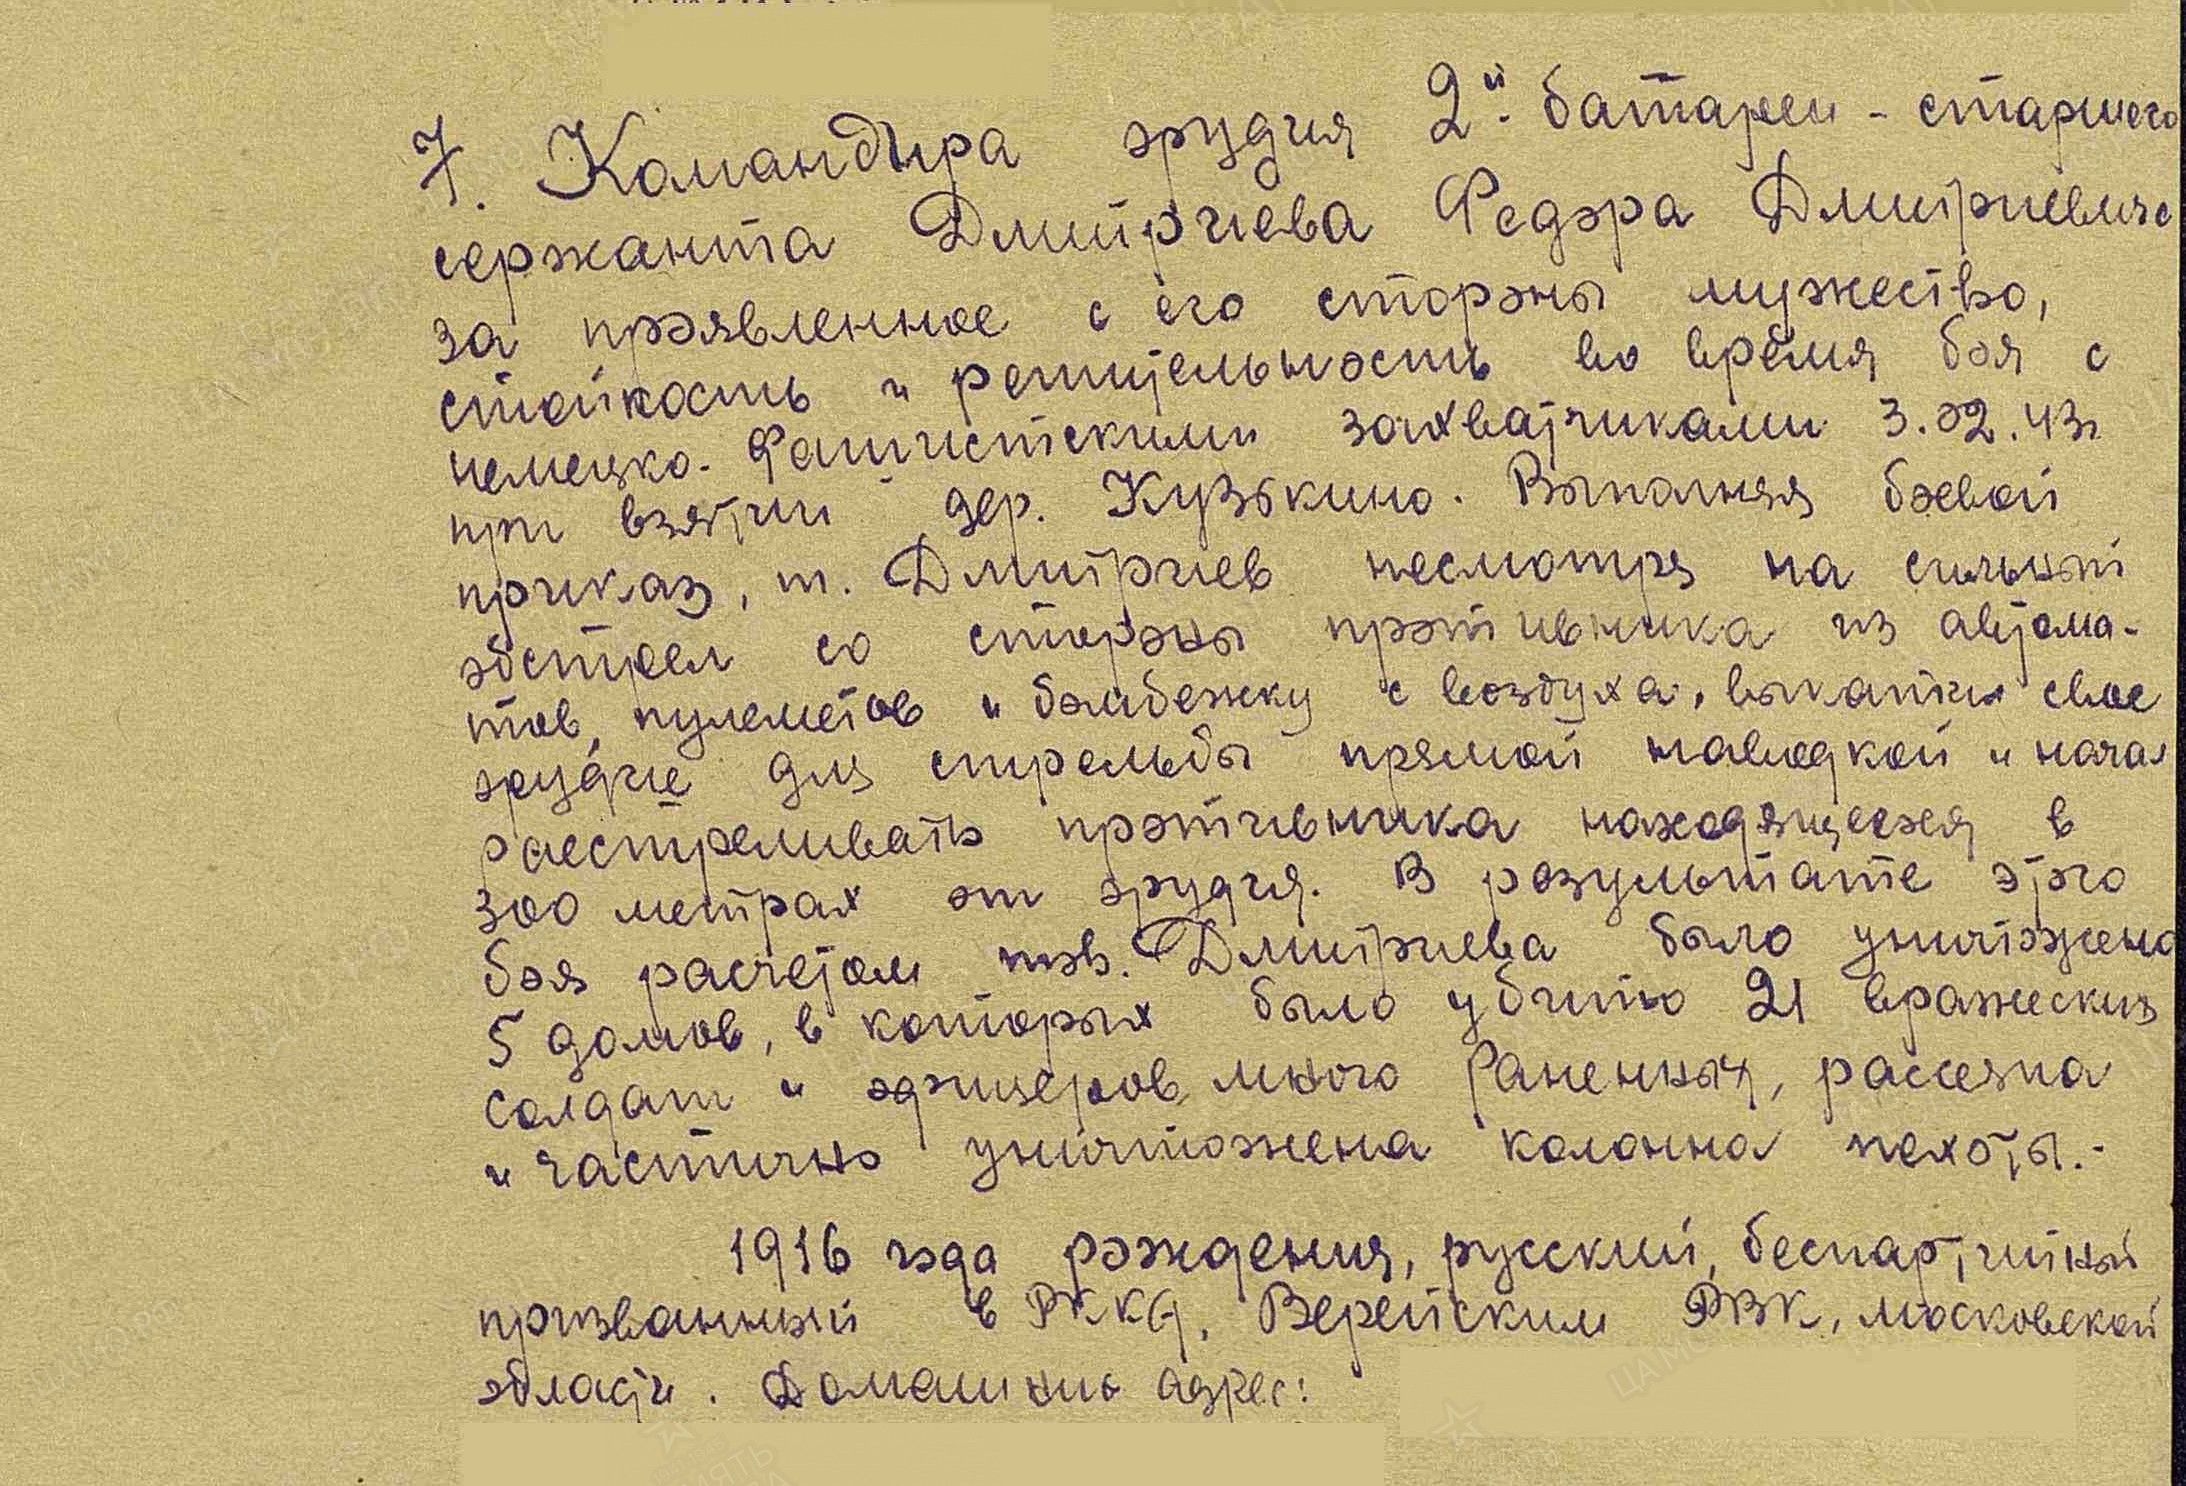 7. Командира орудия 2й батареи - старшего
сержанта Дмитриева Федора Дмитриевича
за проявленное с его стороны мужество,
стойкость и решительность во время боя с
немецко-фашистскими захватчиками 3.02.43г
при взятии дер. Кузькино. Выполняя боевой
приказ, т. Дмитриев несмотря на сильный
обстрел со стороны противника из автома-
тов, пулеметов и бомбежку с воздуха, выкатил свое
орудие для стрельбы прямой наводкой и начал
расстреливать противника находящегося в
300 метрах от орудия. В результате этого
боя расчетом тов. Дмитриева было уничтожено
5 домов, в которых было убито 21 вражеских
солдат и офицеров, много раненных, рассеяна
и частично уничтожена колонна пехоты.-
1916 года рождения, русский, беспартийный
призванный в РККА, Верейским РВК, московской
области. Домашний адрес: